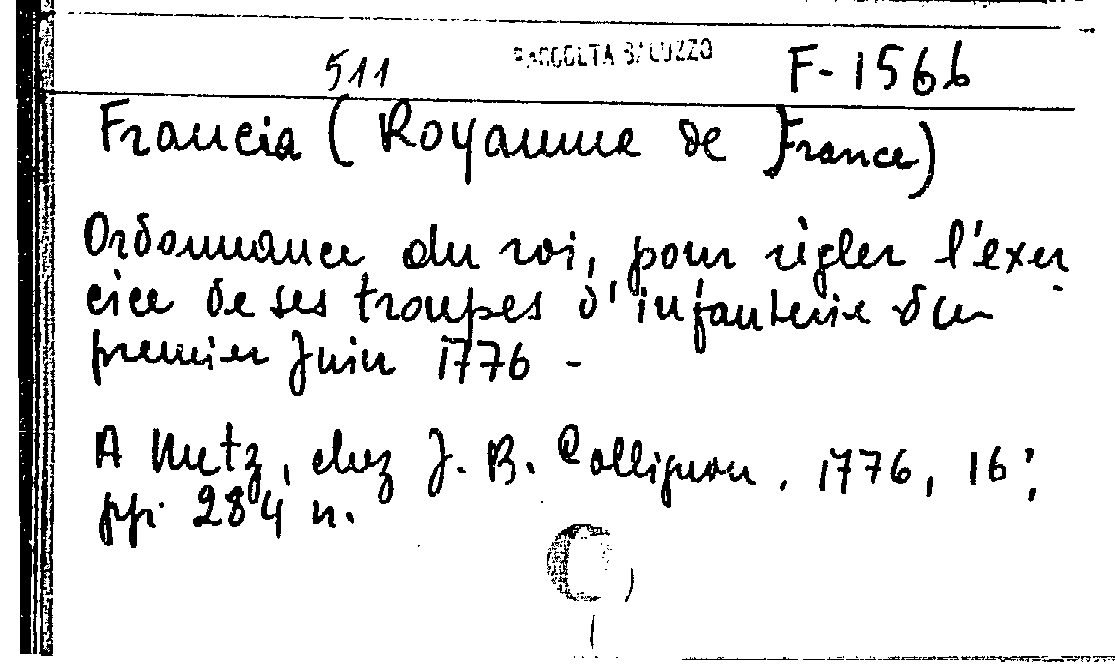 511 RACCOLTA SALUZZO F-1566
Francia (Royaume de France)
Ordonnance du roi, pour règler l'exer
cice de ses troupes d'infanterie du
premier Juin 1776 -
A Metz, chez J. B. Collignon, 1776, 16°;
pp. 284 n.